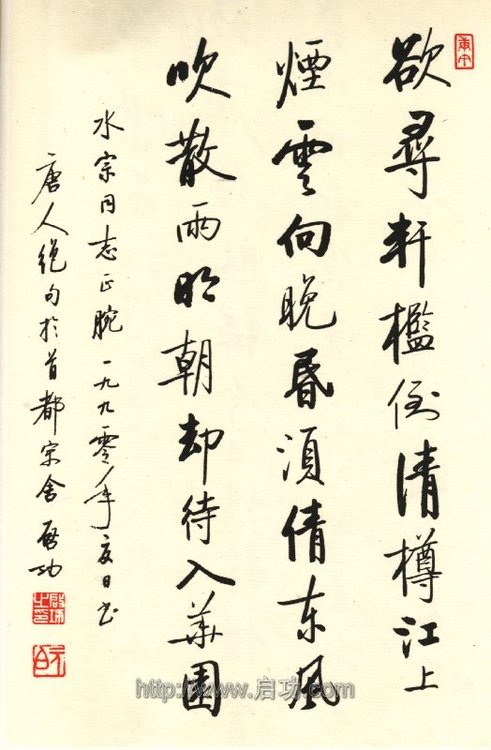 欲尋軒檻倒清樽江上
煙雲向晚昏須倩东風
吹散雨明朝却待入華園
水宗同志正腕一九九零年夏日书
唐人绝句於首都宗舍 啟功
元白
http://www.启功.com